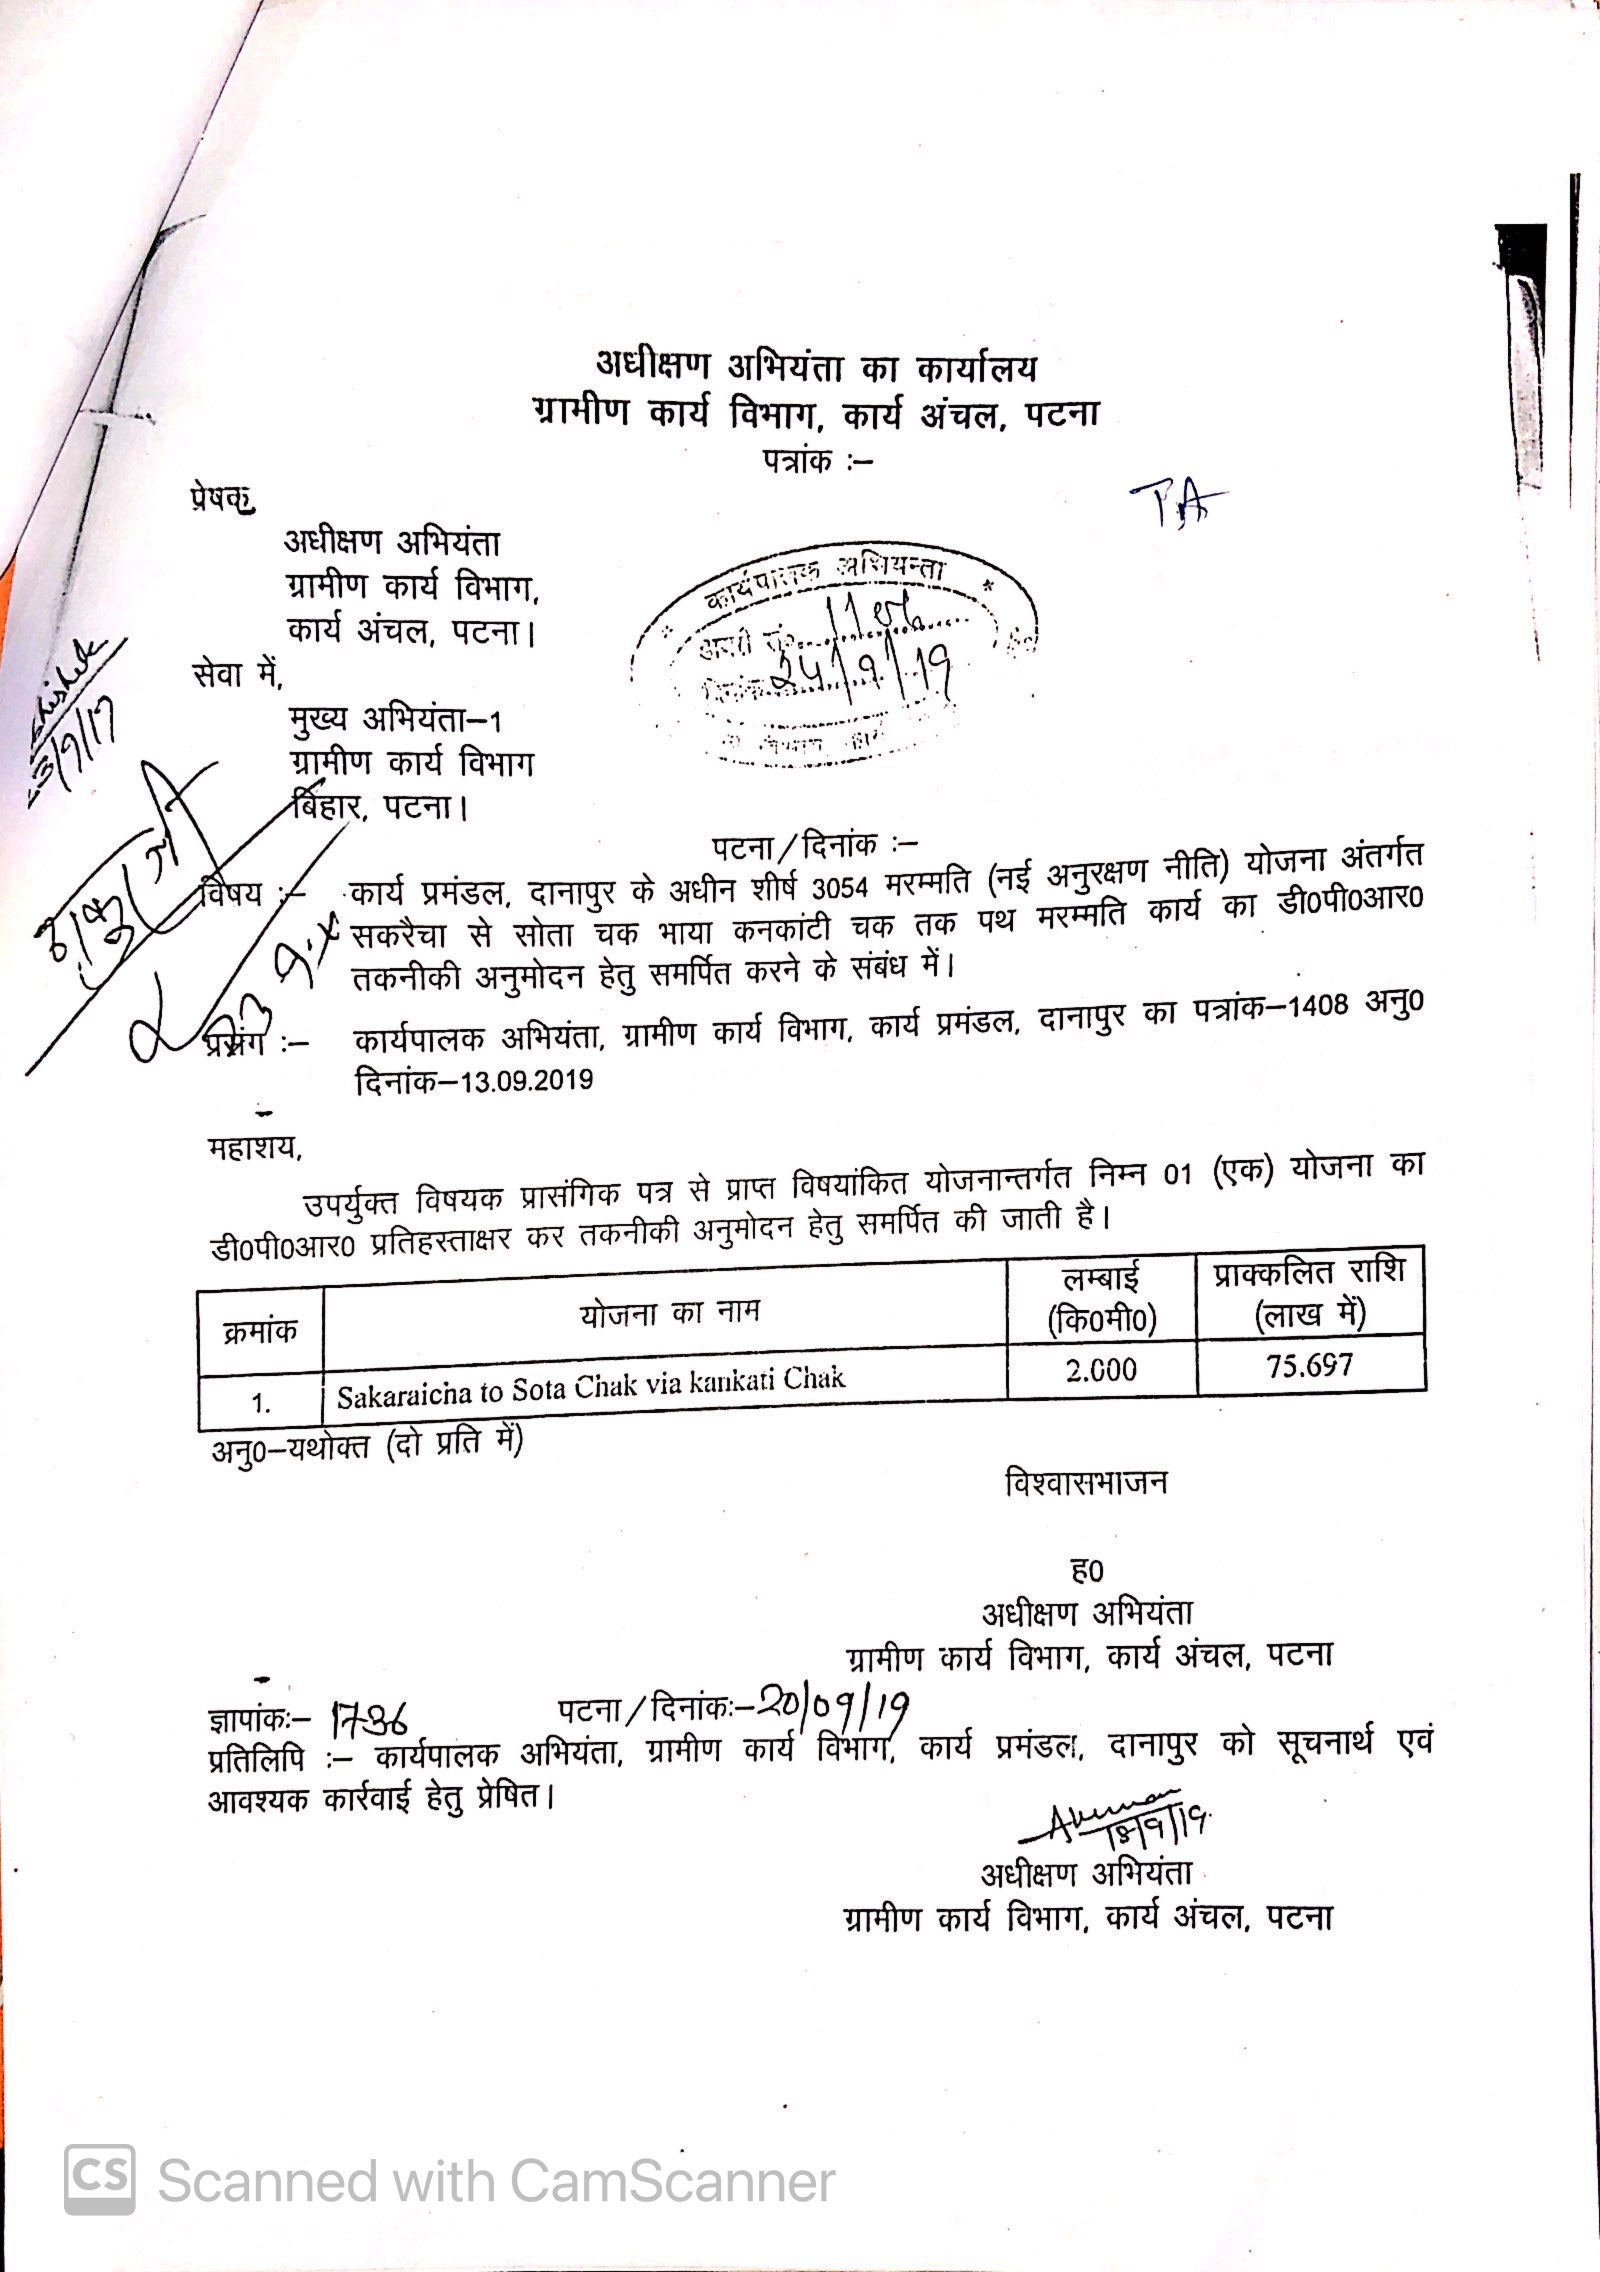 अधीक्षण अभियंता का कार्यालय
ग्रामीण कार्य विभाग, कार्य अंचल, पटना
पत्रांक :–
प्रेषक,
T.A
अधीक्षण अभियंता
ग्रामीण कार्य विभाग,
कार्य अंचल, पटना।
कार्यपालक अभियन्ता
सेवा में,
24/9/19
मुख्य अभियंता–1
ग्रामीण कार्य विभाग
बिहार, पटना।
पटना/दिनांक :–
विषय :– कार्य प्रमंडल, दानापुर के अधीन शीर्ष 3054 मरम्मति (नई अनुरक्षण नीति) योजना अंतर्गत
सकरैचा से सोता चक भाया कनकांटी चक तक पथ मरम्मति कार्य का डी0पी0आर0
तकनीकी अनुमोदन हेतु समर्पित करने के संबंध में।
प्रसंग :– कार्यपालक अभियंता, ग्रामीण कार्य विभाग, कार्य प्रमंडल, दानापुर का पत्रांक–1408 अनु0
दिनांक–13.09.2019
महाशय,
उपर्युक्त विषयक प्रासंगिक पत्र से प्राप्त विषयांकित योजनान्तर्गत निम्न 01 (एक) योजना का
डी0पी0आर0 प्रतिहस्ताक्षर कर तकनीकी अनुमोदन हेतु समर्पित की जाती है।
क्रमांक योजना का नाम लम्बाई (कि0मी0) प्राक्कलित राशि (लाख में)
1. Sakaraicha to Sota Chak via kankati Chak 2.000 75.697
अनु0–यथोक्त (दो प्रति में)
विश्वासभाजन
ह0
अधीक्षण अभियंता
ग्रामीण कार्य विभाग, कार्य अंचल, पटना
ज्ञापांक:– 1736 पटना/दिनांक:–20/09/19
प्रतिलिपि :– कार्यपालक अभियंता, ग्रामीण कार्य विभाग, कार्य प्रमंडल, दानापुर को सूचनार्थ एवं
आवश्यक कार्रवाई हेतु प्रेषित।
18/9/19
अधीक्षण अभियंता
ग्रामीण कार्य विभाग, कार्य अंचल, पटना
CS Scanned with CamScanner